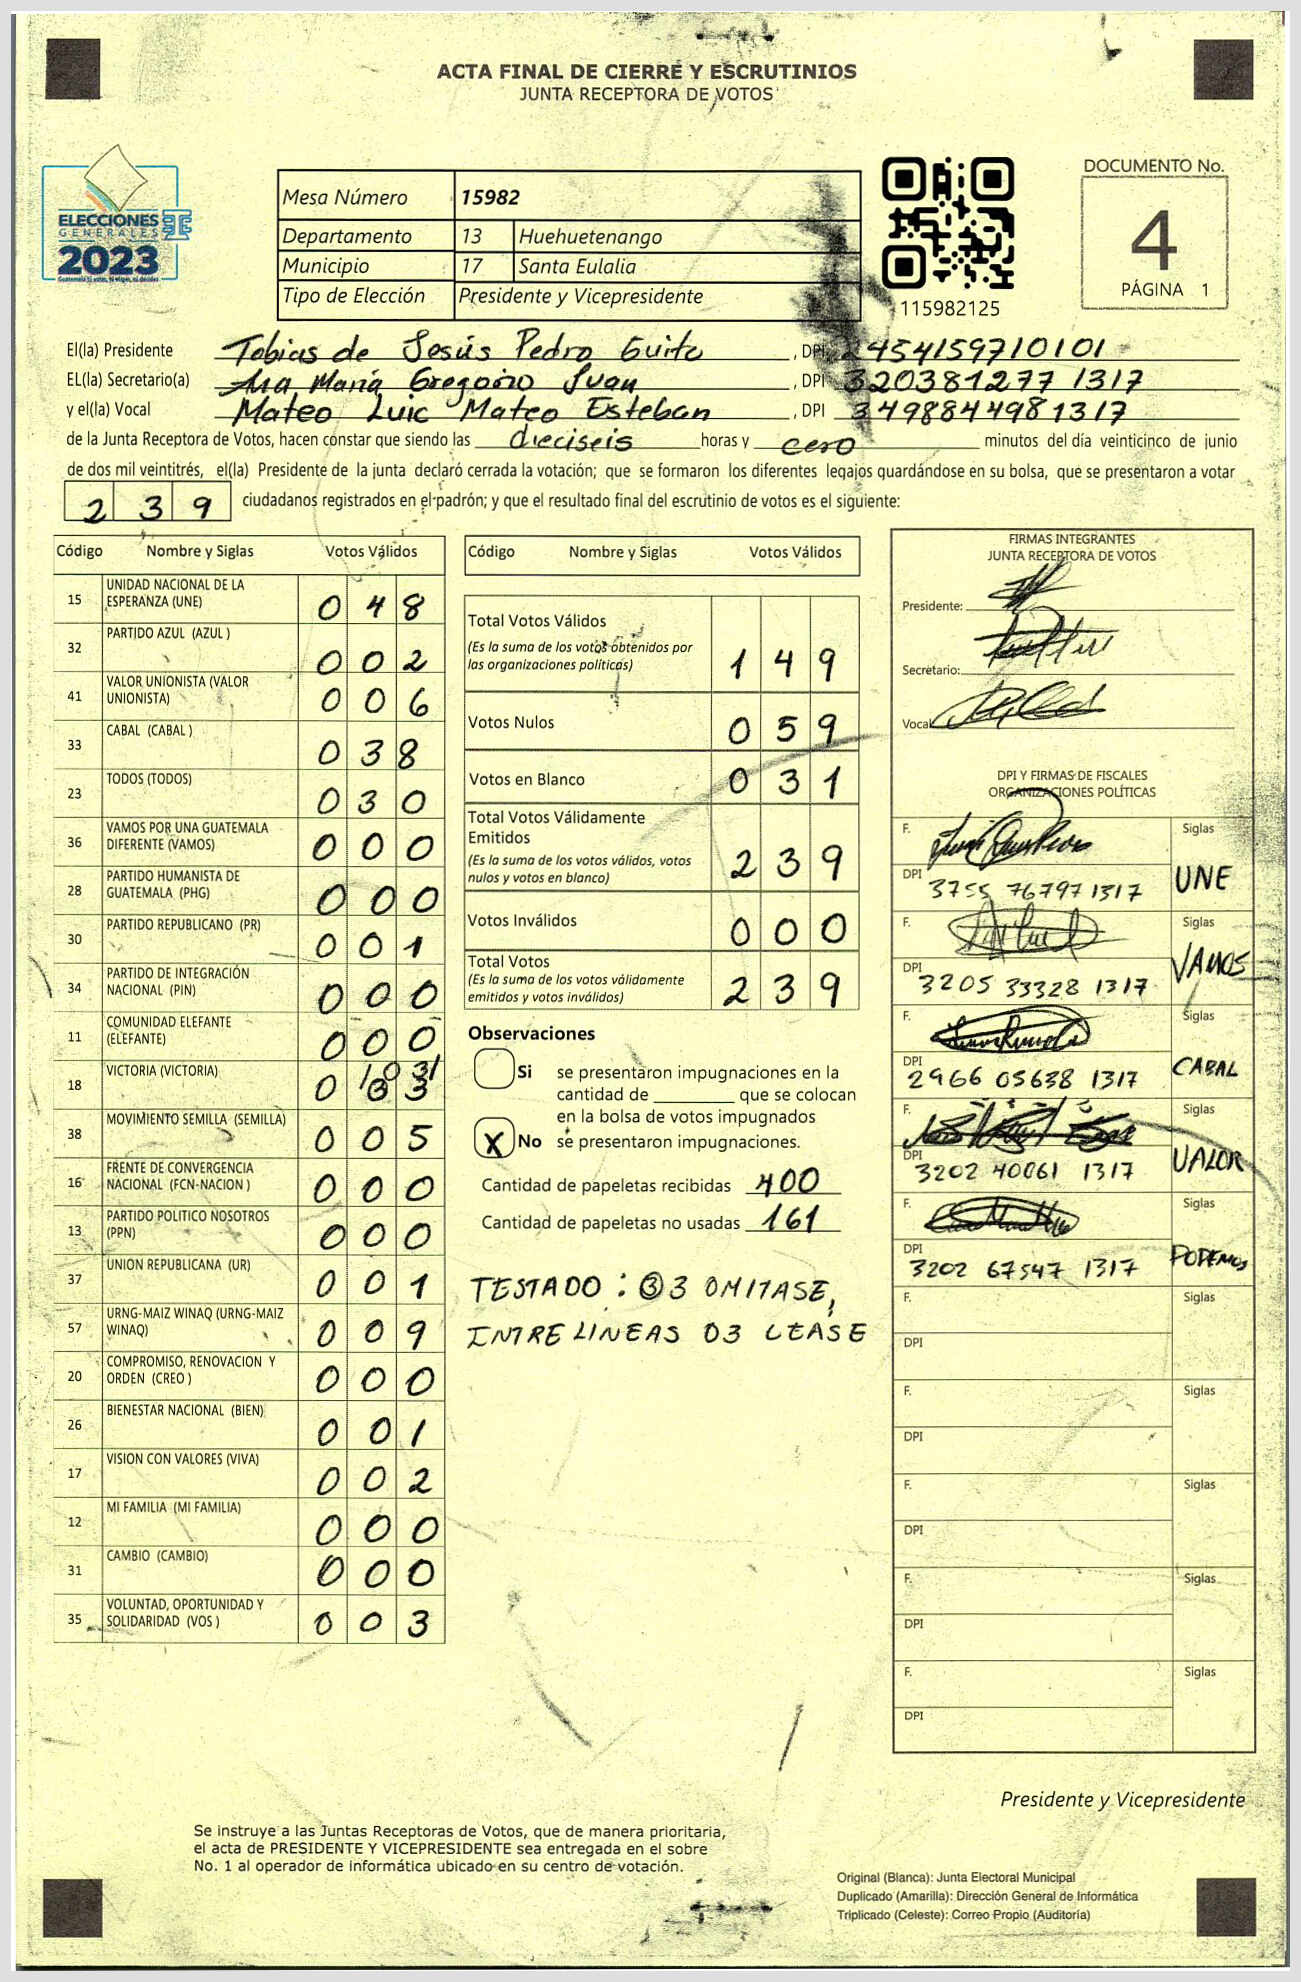 ACTA FINAL DE CIERRE Y ESCRUTINIOS
JUNTA RECEPTORA DE VOTOS
ELECCIONES
GENERALES
2023
Mesa Número 15982
Departamento 13 Huehuetenango
Municipio 17 Santa Eulalia
Tipo de Elección Presidente y Vicepresidente
115982125
DOCUMENTO No.
4
PÁGINA 1
El(la) Presidente Tobias de Jesús Pedro Guito , DPI 2454159710101
EL(la) Secretario(a) Ana María Gregorio Juan , DPI 3203812771317
y el(la) Vocal Mateo Luic Mateo Esteban , DPI 3498844981317
de la Junta Receptora de Votos, hacen constar que siendo las dieciseis horas y cero minutos del día veinticinco de junio
de dos mil veintitrés, el(la) Presidente de la junta declaró cerrada la votación; que se formaron los diferentes legajos quardándose en su bolsa, que se presentaron a votar
239 ciudadanos registrados en el padrón; y que el resultado final del escrutinio de votos es el siguiente:
Código Nombre y Siglas Votos Válidos
15 UNIDAD NACIONAL DE LA ESPERANZA (UNE) 0 4 8
32 PARTIDO AZUL (AZUL ) 0 0 2
41 VALOR UNIONISTA (VALOR UNIONISTA) 0 0 6
33 CABAL (CABAL ) 0 3 8
23 TODOS (TODOS) 0 3 0
36 VAMOS POR UNA GUATEMALA DIFERENTE (VAMOS) 0 0 0
28 PARTIDO HUMANISTA DE GUATEMALA (PHG) 0 0 0
30 PARTIDO REPUBLICANO (PR) 0 0 1
34 PARTIDO DE INTEGRACIÓN NACIONAL (PIN) 0 0 0
11 COMUNIDAD ELEFANTE (ELEFANTE) 0 0 0
18 VICTORIA (VICTORIA) 0 3 3 /03/
38 MOVIMIENTO SEMILLA (SEMILLA) 0 0 5
16 FRENTE DE CONVERGENCIA NACIONAL (FCN-NACION ) 0 0 0
13 PARTIDO POLITICO NOSOTROS (PPN) 0 0 0
37 UNION REPUBLICANA (UR) 0 0 1
57 URNG-MAIZ WINAQ (URNG-MAIZ WINAQ) 0 0 9
20 COMPROMISO, RENOVACION Y ORDEN (CREO ) 0 0 0
26 BIENESTAR NACIONAL (BIEN) 0 0 1
17 VISION CON VALORES (VIVA) 0 0 2
12 MI FAMILIA (MI FAMILIA) 0 0 0
31 CAMBIO (CAMBIO) 0 0 0
35 VOLUNTAD, OPORTUNIDAD Y SOLIDARIDAD (VOS ) 0 0 3
Código Nombre y Siglas Votos Válidos
Total Votos Válidos 1 4 9
(Es la suma de los votos obtenidos por
las organizaciones políticas)
Votos Nulos 0 5 9
Votos en Blanco 0 3 1
Total Votos Válidamente
Emitidos 2 3 9
(Es la suma de los votos válidos, votos
nulos y votos en blanco)
Votos Inválidos 0 0 0
Total Votos 2 3 9
(Es la suma de los votos válidamente
emitidos y votos inválidos)
Observaciones
Si se presentaron impugnaciones en la
cantidad de ________ que se colocan
en la bolsa de votos impugnados
X No se presentaron impugnaciones.
Cantidad de papeletas recibidas 400
Cantidad de papeletas no usadas 161
TESTADO : 33 OMITASE,
INTRELINEAS 03 LEASE
FIRMAS INTEGRANTES
JUNTA RECEPTORA DE VOTOS
Presidente:
Secretario:
Vocal
DPI Y FIRMAS DE FISCALES
ORGANIZACIONES POLÍTICAS
F. Siglas
DPI 3755 76797 1317 UNE
F. Siglas
DPI 3205 33328 1317 VAMOS
F. Siglas
DPI 2966 05638 1317 CABAL
F. Siglas
DPI 3202 40061 1317 VALOR
F. Siglas
DPI 3202 67547 1317 PODEMOS
F. Siglas
DPI
F. Siglas
DPI
F. Siglas
DPI
F. Siglas
DPI
F. Siglas
DPI
Presidente y Vicepresidente
Se instruye a las Juntas Receptoras de Votos, que de manera prioritaria,
el acta de PRESIDENTE Y VICEPRESIDENTE sea entregada en el sobre
No. 1 al operador de informática ubicado en su centro de votación.
Original (Blanca): Junta Electoral Municipal
Duplicado (Amarilla): Dirección General de Informática
Triplicado (Celeste): Correo Propio (Auditoría)